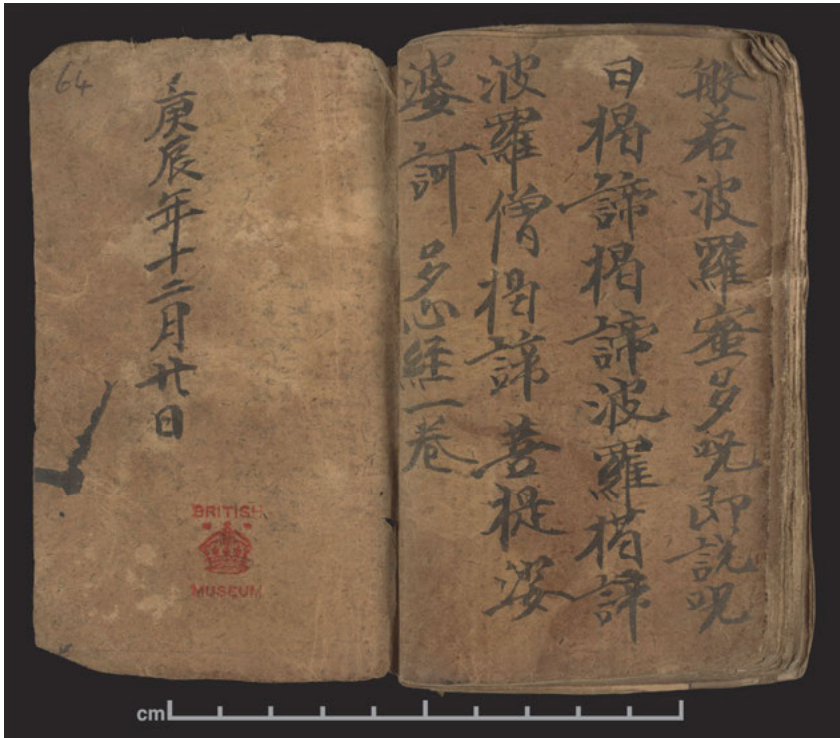 般若波羅蜜多呪即說呪
曰揭諦揭諦波羅揭諦
波羅僧揭諦菩提娑
婆訶 多心經一卷
庚辰年十二月廿日
64
BRITISH
MUSEUM
cm